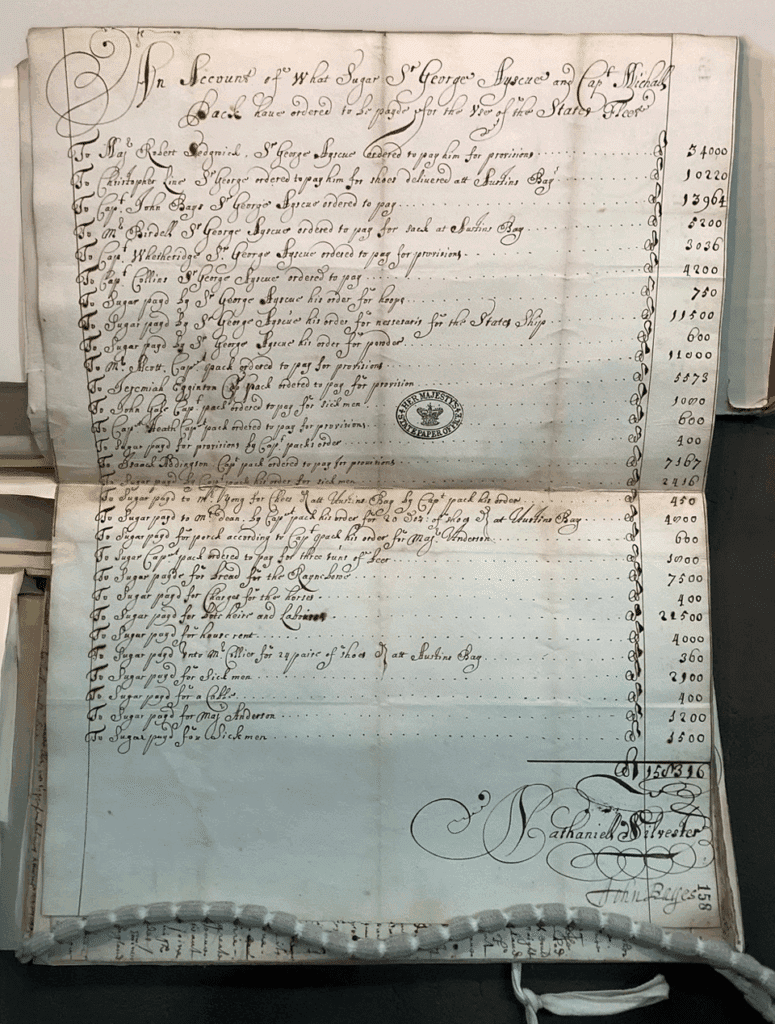 An Account of What Sugar Sr George Ayscue and Capt Michall
Pack have ordered to be payde for the Vse of the States Fleet
To Maj Robert Sedgwick, Sr George Ayscue ordered to pay him for provisions 34000
To Christopher Line Sr George ordered to pay him for shoes delivered att Austins Bay 10220
To Capt. John Bays Sr George Ayscue ordered to pay 13964
To Mr Birdell Sr George Ayscue ordered to pay for sack at Austins Bay 5200
To Capt Whetheridge Sr George Ayscue ordered to pay for provisions 3036
To Capt Collins Sr George Ayscue ordered to pay 4200
To Sugar payd by Sr George Ayscue his order for hoops 750
To Sugar payd by Sr George Ayscue his order for nessesaris for the States Ship 11500
To Sugar payd by Sr George Ayscue his order for powder 600
To Mr Capt pack ordered to pay for provisions 11000
To Jeremiah Egginton Capt pack ordered to pay for provision 5573
To John Gale Capt pack ordered to pay for sickmen 1000
To Capt Heath Capt pack ordered to pay for provisions 600
To Sugar payd for provisions by Capt packs order 400
To Addington Capt pack ordered to pay for provisions 7167
To Sugar payd by Capt pack his order for sickmen 2416
To Sugar payd to Mr for shoes att Austins Bay by Capt pack his order 450
To Sugar payd to Mr Dean by Capt pack his order for 20 of shoes at Austins Bay 4000
To Sugar payd for porck according to Capt pack his order for Maj Anderson 600
To Sugar Capt pack ordered to pay for three tuns of beer 1800
To Sugar payde for bread for the Raynebowe 7500
To Sugar payd for Charges for the horses 400
To Sugar payd for and Labourers 21500
To Sugar payd for house rent 4000
To Sugar payd Unto Mr Collier for 24 paire of shoes att Austins Bay 360
To Sugar payd for Sickmen 2900
To Sugar payd for a Cable 400
To Sugar payd for Maj Anderson 1200
To Sugar payd for Sickmen 1500
158316
Nathaniell Silvester
John Bayes
158
HER MAJESTY'S STATE PAPER OFFICE